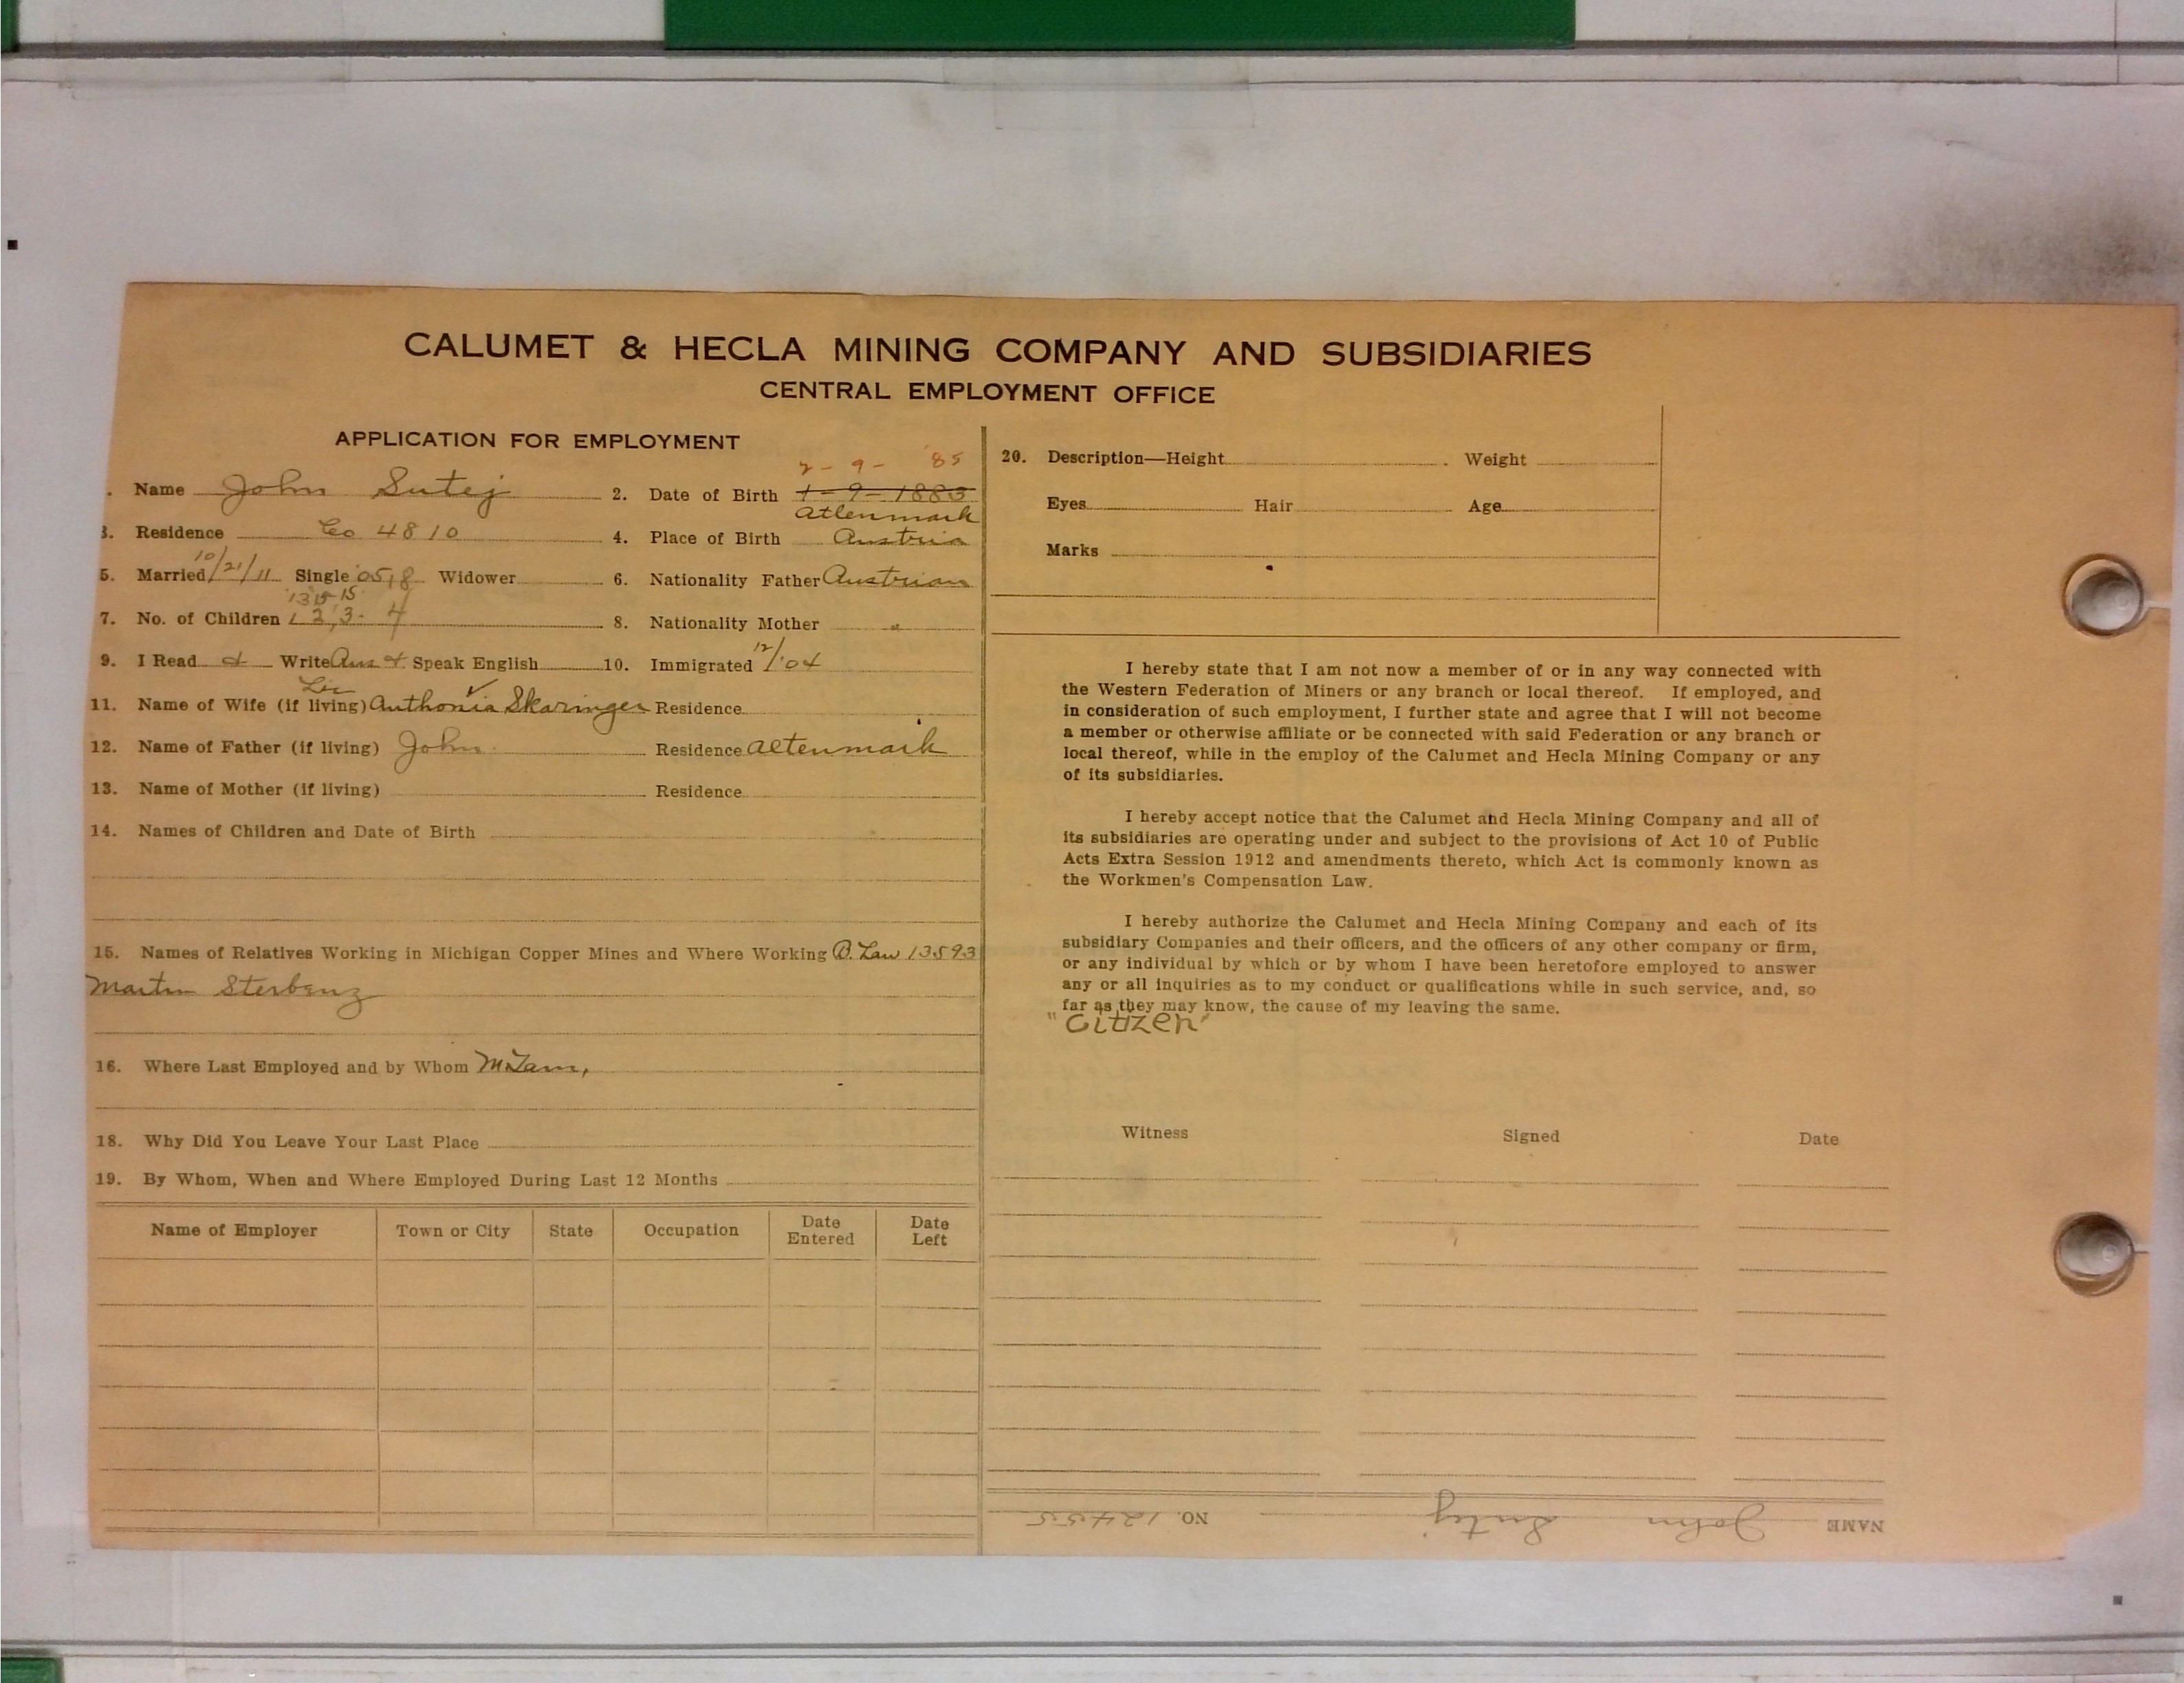 CALUMET & HECLA MINING COMPANY AND SUBSIDIARIES
CENTRAL EMPLOYMENT OFFICE
APPLICATION FOR EMPLOYMENT
2-9-'85
. Name John Sutej 2. Date of Birth 1-9-1883
Altenmark
3. Residence Co 4810 4. Place of Birth Austria
5. Married 10/21/11 Single Widower 6. Nationality Father Austrian
'13 15 15
7. No. of Children 1 2, 3 - 4 8. Nationality Mother "
9. I Read & Write Aus & Speak English 10. Immigrated 12/'04
11. Name of Wife (if living) Anthonia Skaringer Residence
12. Name of Father (if living) John Residence Altenmark
13. Name of Mother (if living) Residence
14. Names of Children and Date of Birth
15. Names of Relatives Working in Michigan Copper Mines and Where Working B. Law 13593
Martin Sterbenz
16. Where Last Employed and by Whom
18. Why Did You Leave Your Last Place
19. By Whom, When and Where Employed During Last 12 Months
Name of Employer Town or City State Occupation Date Entered Date Left
20. Description—Height Weight
Eyes Hair Age
Marks
I hereby state that I am not now a member of or in any way connected with
the Western Federation of Miners or any branch or local thereof. If employed, and
in consideration of such employment, I further state and agree that I will not become
a member or otherwise affiliate or be connected with said Federation or any branch or
local thereof, while in the employ of the Calumet and Hecla Mining Company or any
of its subsidiaries.
I hereby accept notice that the Calumet and Hecla Mining Company and all of
its subsidiaries are operating under and subject to the provisions of Act 10 of Public
Acts Extra Session 1912 and amendments thereto, which Act is commonly known as
the Workmen's Compensation Law.
I hereby authorize the Calumet and Hecla Mining Company and each of its
subsidiary Companies and their officers, and the officers of any other company or firm,
or any individual by which or by whom I have been heretofore employed to answer
any or all inquiries as to my conduct or qualifications while in such service, and, so
far as they may know, the cause of my leaving the same.
"Citizen"
Witness Signed Date
NAME John Sutej NO. 12455